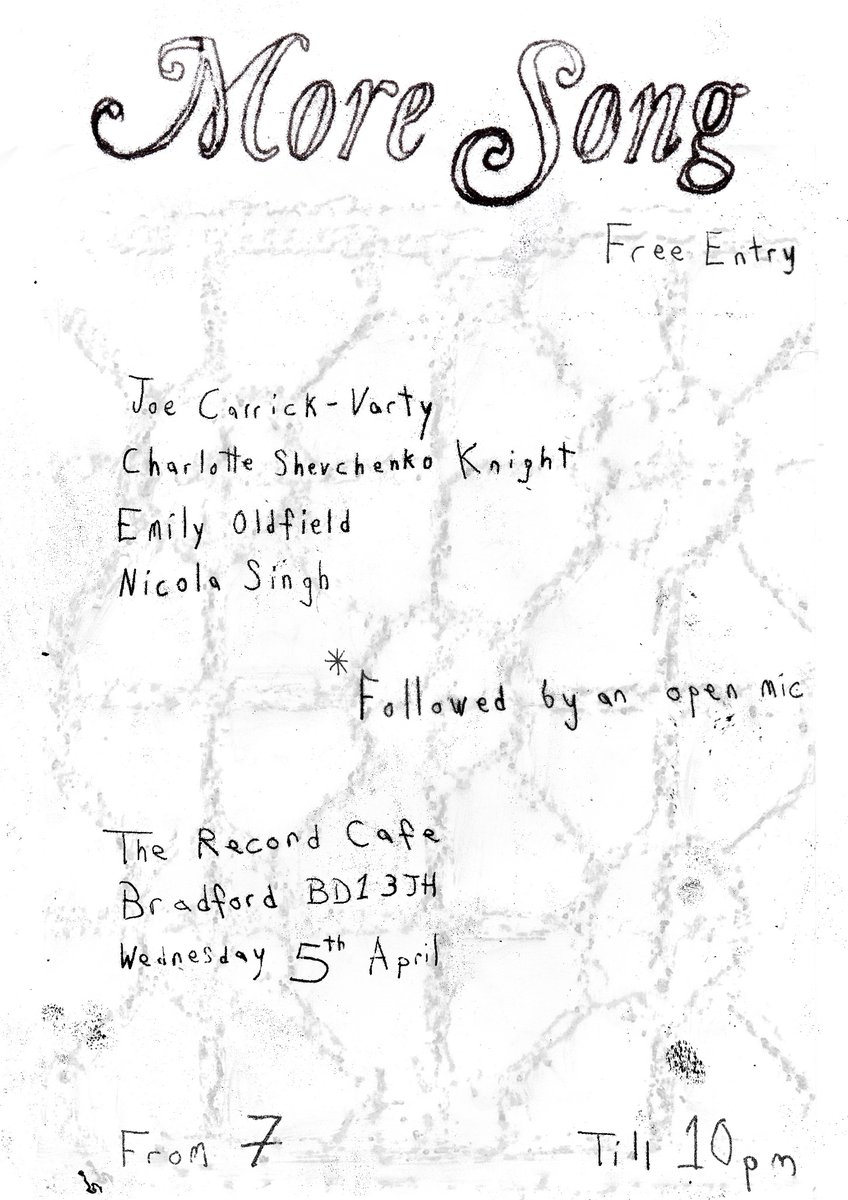 More Song
Free Entry
Joe Carrick-Varty
Charlotte Shevchenko Knight
Emily Oldfield
Nicola Singh
*Followed by an open mic
The Record Cafe
Bradford BD1 3JH
Wednesday 5th April
From 7 Till 10pm